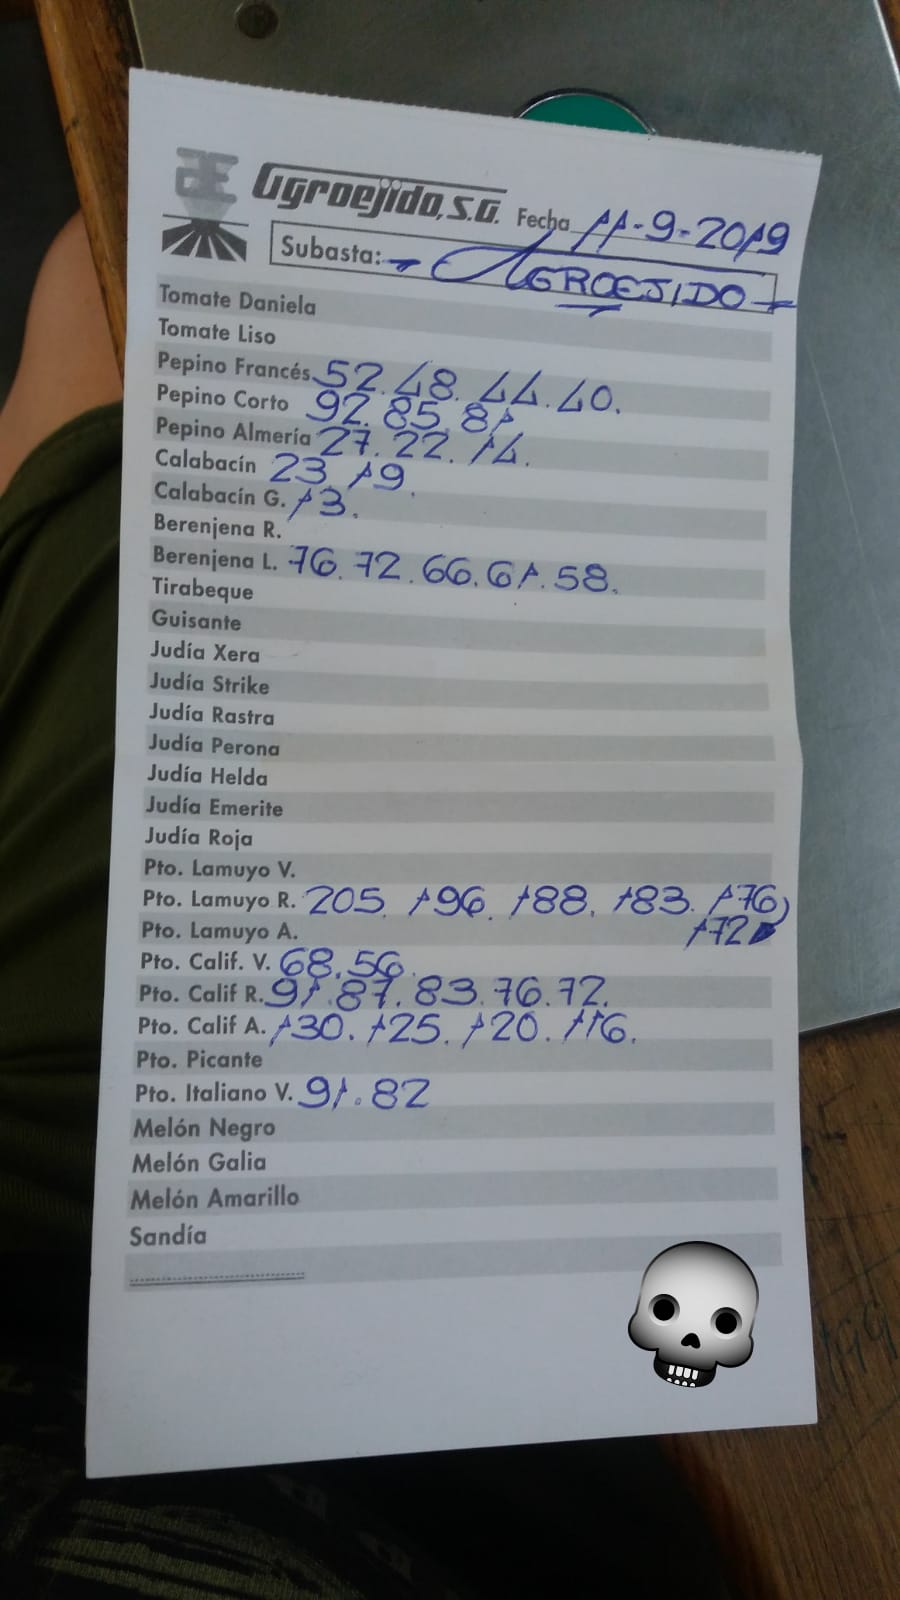 Agroejido, S.A. Fecha 11-9-2019
Subasta: AGROEJIDO
Tomate Daniela
Tomate Liso
Pepino Francés 52. 48. 44. 40.
Pepino Corto 92. 85. 81
Pepino Almería 27. 22. 14.
Calabacín 23. 19.
Calabacín G. 13.
Berenjena R.
Berenjena L. 76. 72. 66. 61. 58.
Tirabeque
Guisante
Judía Xera
Judía Strike
Judía Rastra
Judía Perona
Judía Helda
Judía Emerite
Judía Roja
Pto. Lamuyo V.
Pto. Lamuyo R. 205. 196. 188. 183. 176
172
Pto. Lamuyo A.
Pto. Calif. V. 68. 56.
Pto. Calif R. 91. 87. 83. 76. 72.
Pto. Calif A. 130. 125. 120. 116.
Pto. Picante
Pto. Italiano V. 91. 82
Melón Negro
Melón Galia
Melón Amarillo
Sandía